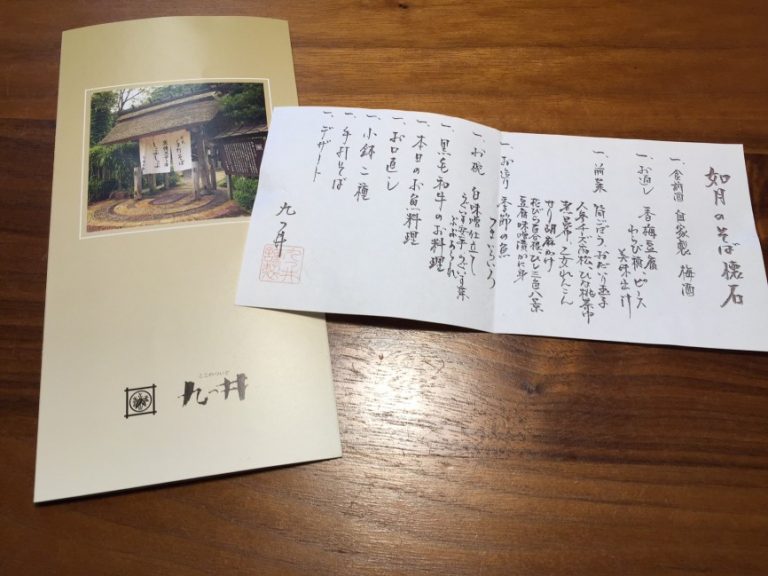 如月のそば懐石
一、食前酒 自家製 梅酒
一、お通し 香梅豆腐
わらび様、ピース
美味出汁
一、前菜 筒ごぼう、おたふく豆
人参チーズ市松、ひな桃最中
黒昆布 乙女れんこん
せり胡麻かけ
花びら百合根、ひし三色八菜
豆腐味噌漬かに身
一、お造り 季節の魚
一、お椀 白味噌仕立て
うぐいす菜
ぶぶあられ
一、黒毛和牛のお料理
一、本日のお魚料理
一、お口直し
一、小鉢二種
一、手打そば
一、デザート
九つ井
ここのついど
九つ井